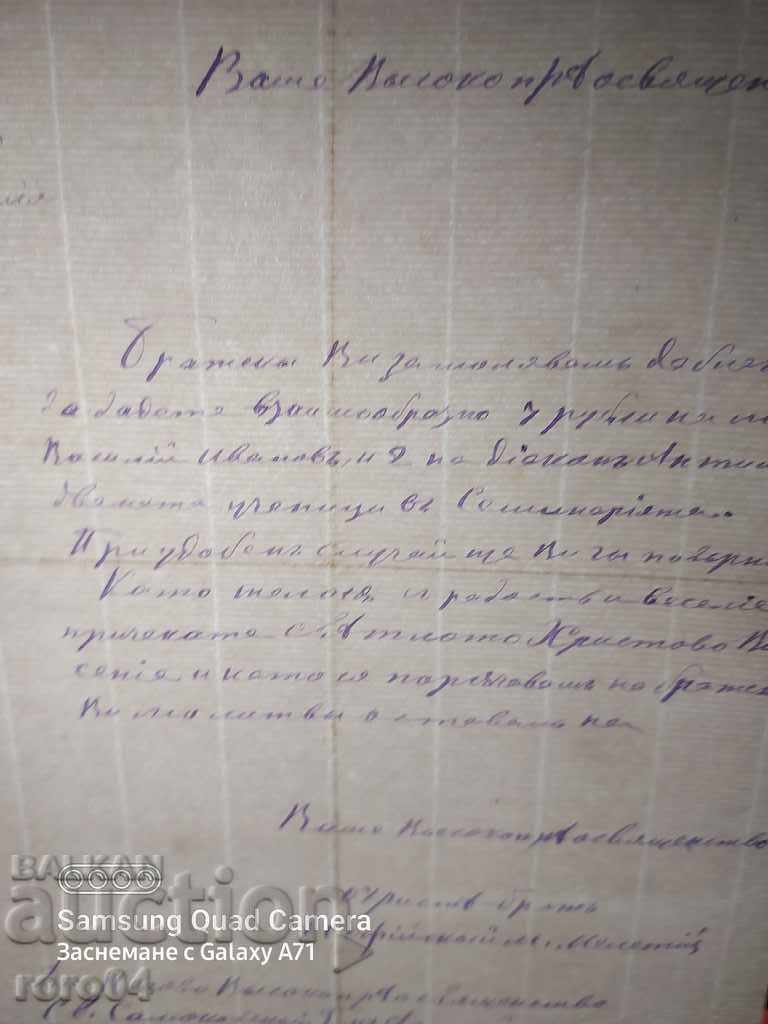 Ваше Высокопрѣосвящен
Братски Ви замолявамъ да благ
да дадете взаимообразно 7 рубли на
Василій Ивановъ, и 8 на діаконъ Антим
двамата ученици въ Семинаріята.
При удобенъ случай ще Ви гы повърн
Като желая съ радость и веселіе
причакате Свѣтлото Христово Вос
сеніе, и като ся порѫчвамъ на братск
Ви молитви оставамъ на
Ваше Высокопрѣосвященство
о Христѣ братъ
Софійскый м. Мелетій
Негово Высокопрѣосвященство
Св. Самоковскый
BALKAN
auction
Samsung Quad Camera
Заснемане с Galaxy A71
roro04